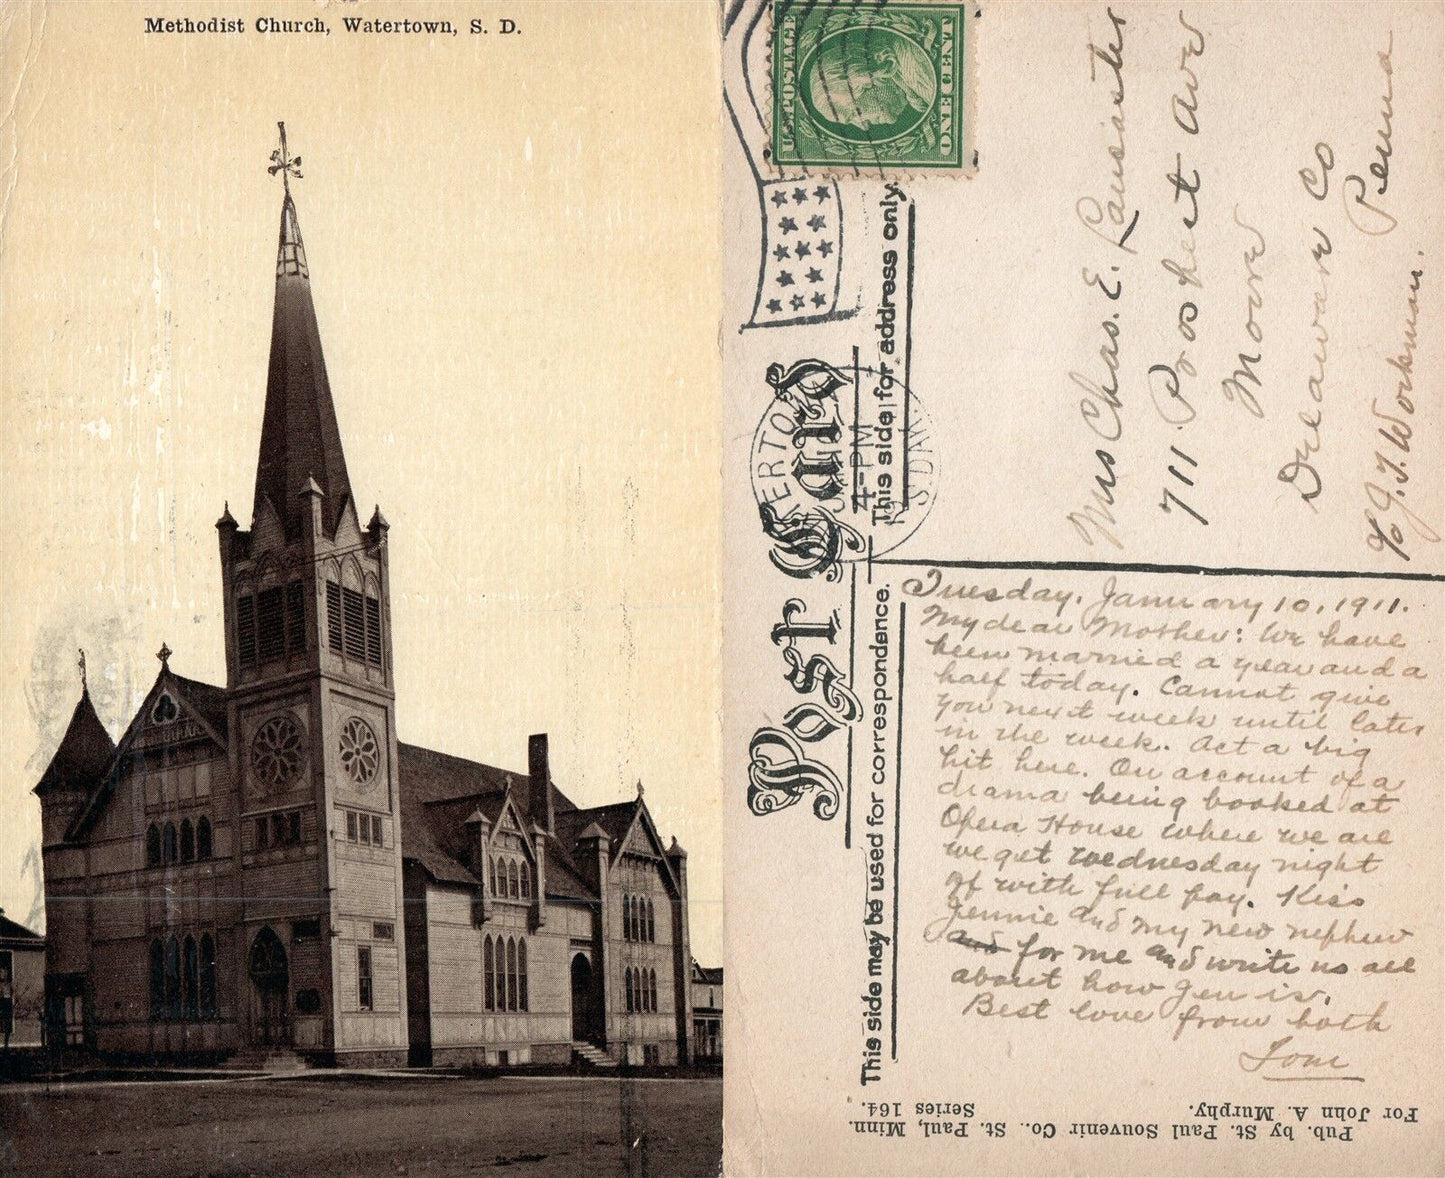 Methodist Church, Watertown, S. D.
U.S. POSTAGE
ONE CENT
Post Card
This side may be used for correspondence.
This side for address only.
4-PM
S. DAK.
Mrs Chas. E. Lancaster
711. Prospect Ave
Moore
Delaware Co
Penna
℅ J. T. Workman.
Tuesday, January 10, 1911.
My dear Mother: We have
been married a year and a
half today. Cannot give
you next week until later
in the week. Act a big
hit here. On account of a
drama being booked at
Opera House where we are
we get Wednesday night
off with full pay. Kiss
Jennie and my new nephew
and for me and write us all
about how Jen is.
Best love from both
Tom
Pub. by St. Paul Souvenir Co., St. Paul, Minn.
For John A. Murphy. Series 164.